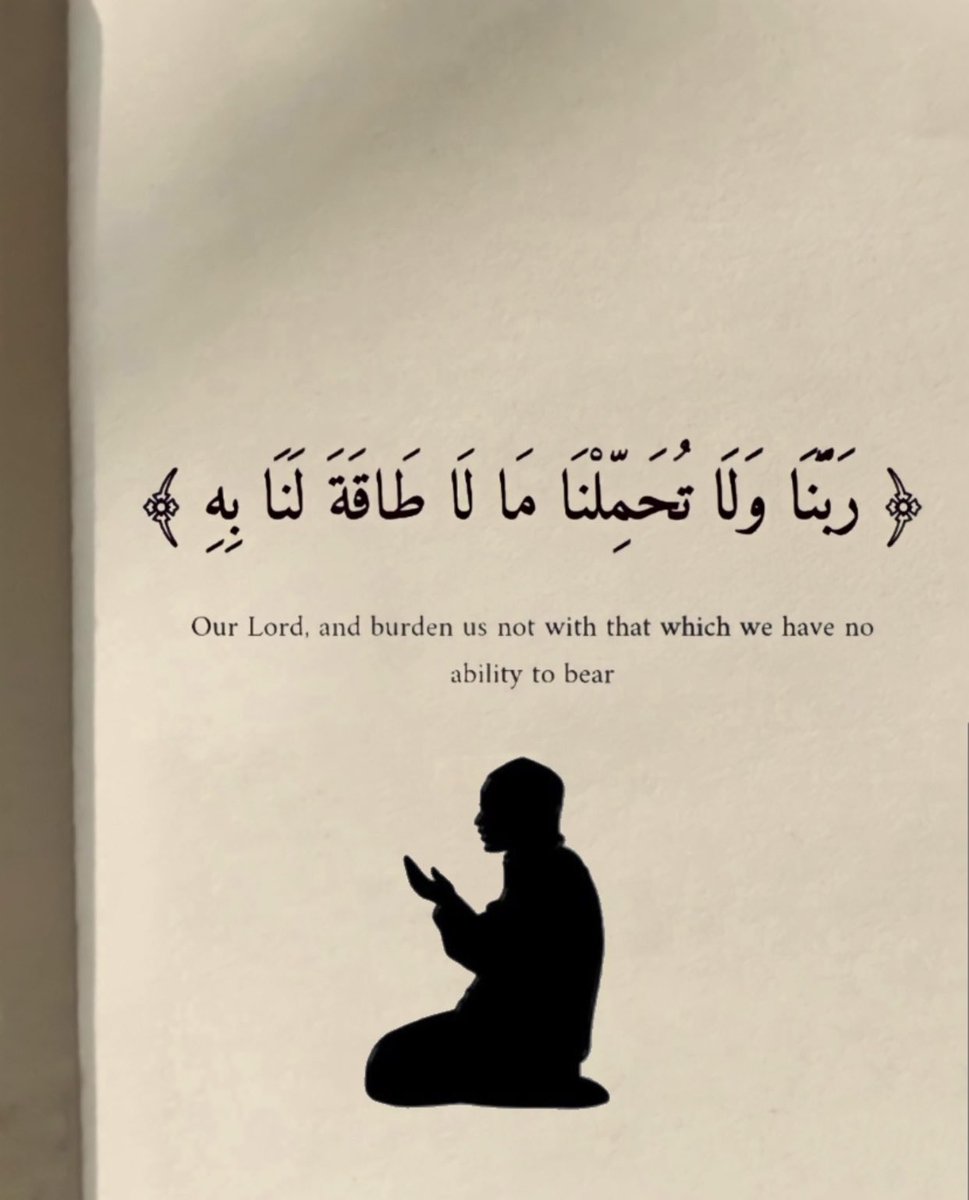 ﴿ رَبَّنَا وَلَا تُحَمِّلْنَا مَا لَا طَاقَةَ لَنَا بِهِ ﴾
Our Lord, and burden us not with that which we have no
ability to bear